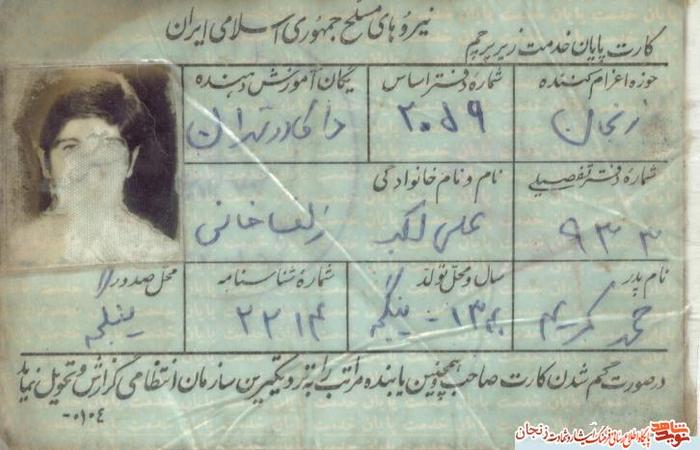 نیروهای مسلح جمهوری اسلامی ایران
کارت پایان خدمت زیر پرچم
حوزه اعزام کننده
شماره دفتر اساس
یگان آموزش دهنده
زنجان
۲۰۵۹
تهران
شماره دفتر تفصیلی
نام و نام خانوادگی
۹۳۳
علی اکبر
زلفخانی
نام پدر
سال و محل تولد
شماره شناسنامه
محل صدور
محمد کریم
۱۳۴۰ - ینگجه
۲۲۱۴
ینگجه
در صورت گم شدن کارت صاحب و همچنین یابنده مراتب را به نزدیکترین سازمان انتظامی گزارش و تحویل نماید
۰۱۰۴-
نوید شاهد
پایگاه اطلاع رسانی فرهنگ ایثار و شهادت زنجان